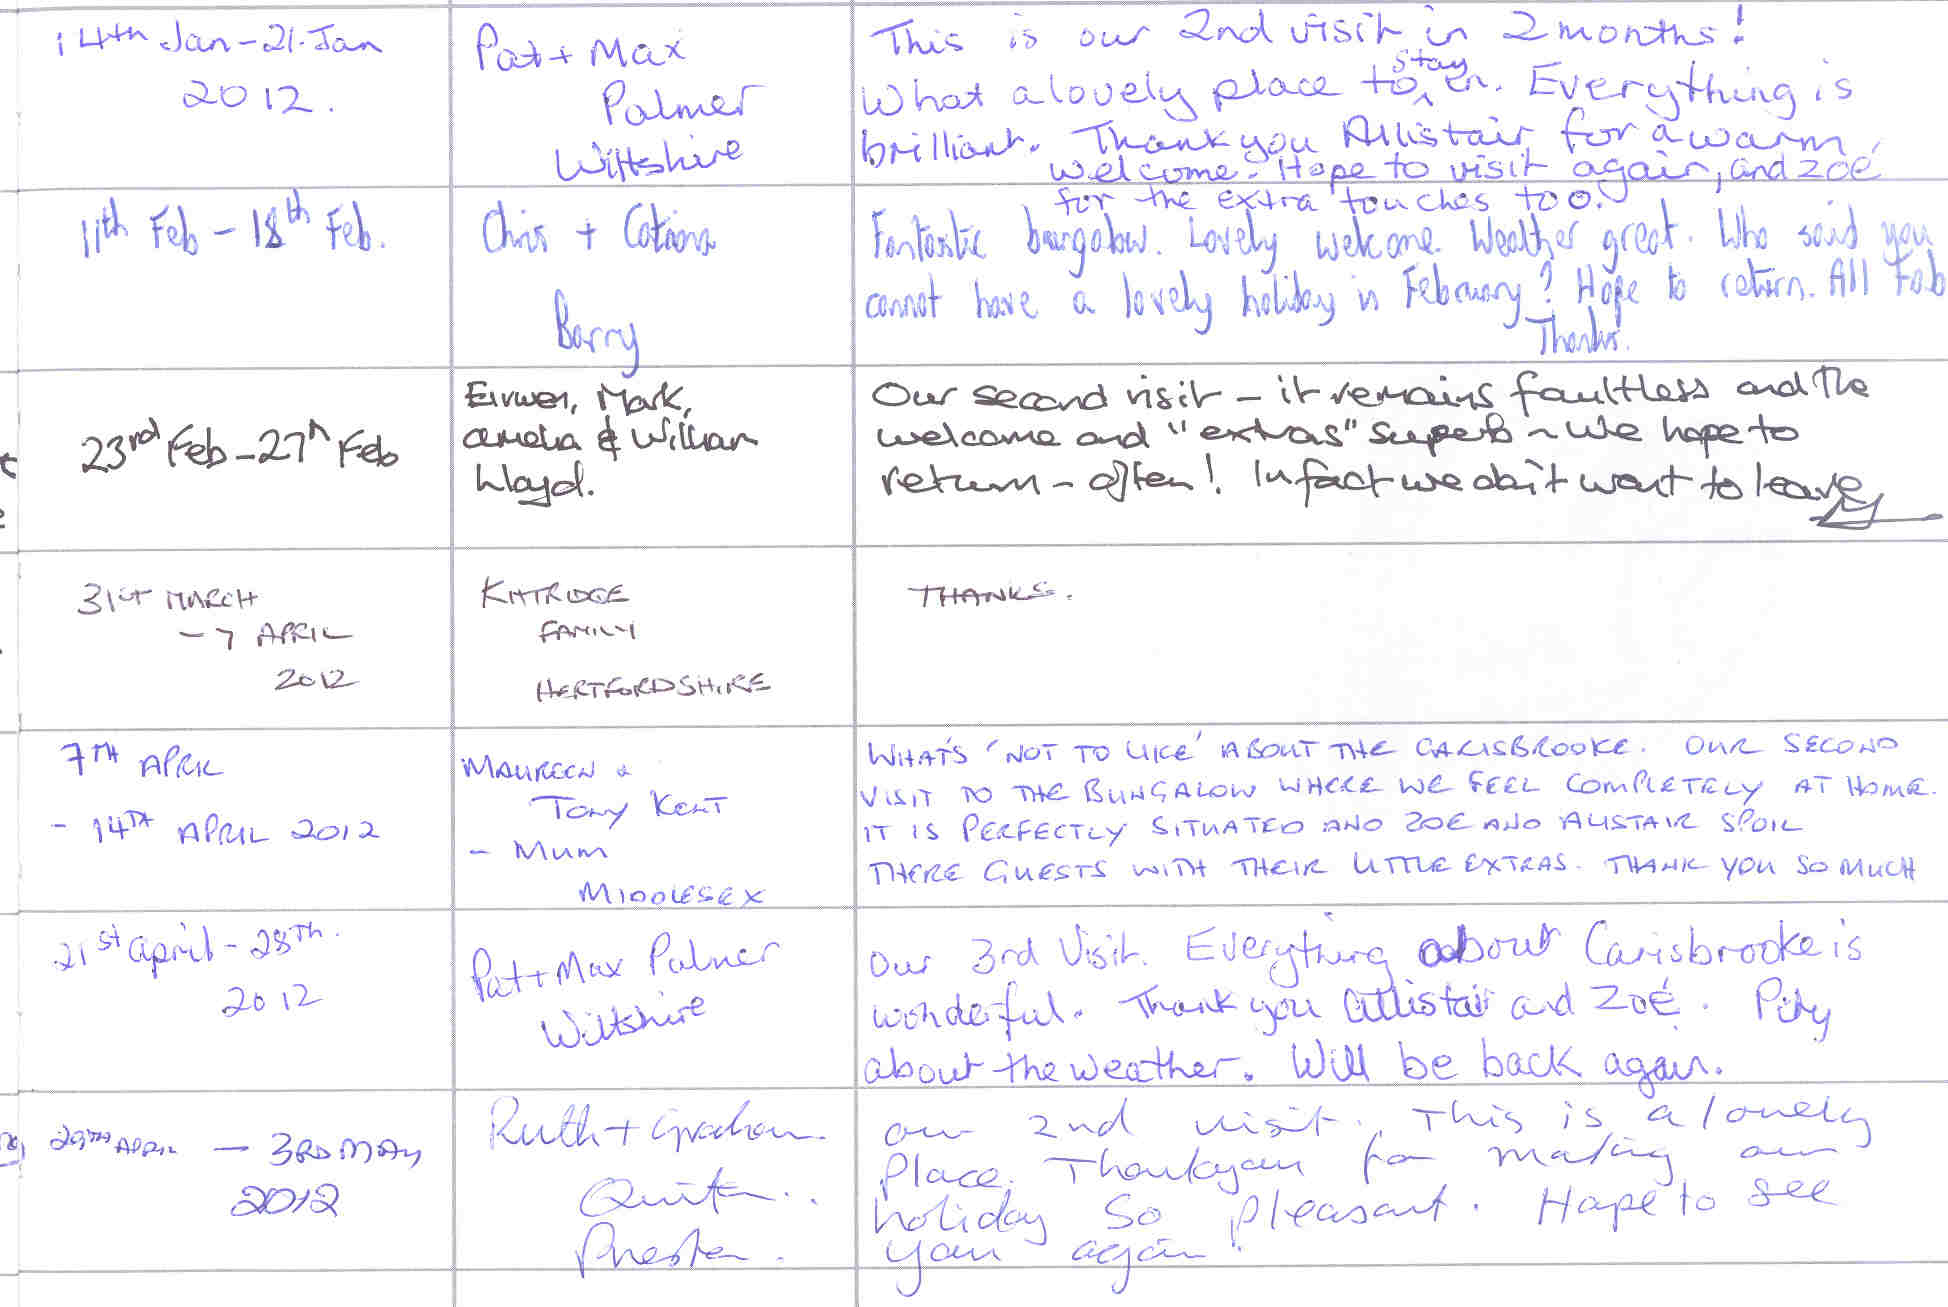 14th Jan - 21. Jan
2012.
Pat + Max
Palmer
Wiltshire
This is our 2nd visit in 2 months!
What a lovely place to stay in. Everything is
brilliant. Thank you Allistair for a warm
welcome. Hope to visit again, and Zoé
for the extra touches too.
11th Feb - 18th Feb.
Chris + Catriona
Barry
Fantastic bungalow. Lovely welcome. Weather great. Who said you
cannot have a lovely holiday in February? Hope to return. All Fab
Thanks.
23rd Feb - 27th Feb
Eirwen, Mark,
Amelia & William
Lloyd.
Our second visit - it remains faultless and the
welcome and "extras" superb ~ We hope to
return - often! In fact we don't want to leave
31st MARCH
- 7 APRIL
2012
KITTRIDGE
FAMILY
HERTFORDSHIRE
THANKS.
7TH APRIL
- 14TH APRIL 2012
MAUREEN &
TONY KENT
- MUM
MIDDLESEX
WHAT'S 'NOT TO LIKE' ABOUT THE CARISBROOKE. OUR SECOND
VISIT TO THE BUNGALOW WHERE WE FEEL COMPLETELY AT HOME.
IT IS PERFECTLY SITUATED AND ZOE AND ALISTAIR SPOIL
THERE GUESTS WITH THEIR LITTLE EXTRAS. THANK YOU SO MUCH
21st April - 28th.
2012
Pat + Max Palmer
Wiltshire
Our 3rd Visit. Everything about Carisbrooke is
wonderful. Thank you Allistair and Zoé. Pity
about the weather. Will be back again.
29TH APRIL - 3RD MAY
2012
Ruth + Graham.
Preston.
our 2nd visit. This is a lovely
Place. Thankyou for making our
holiday so pleasant. Hope to see
you again.